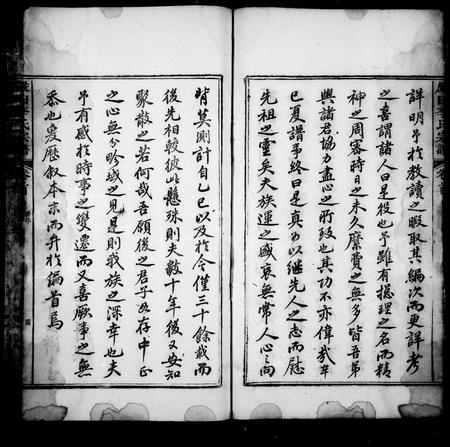 詳明予於教讀之暇取其編次而更詳考
之喜謂諸人曰是役也予雖有總理之名而精
神之周寄時日之未久糜費之無多皆吾弟
與諸君協力盡心之所致也其功不亦偉哉辛
巳夏譜事終曰是真可以繼先人之志而慰
先祖之靈矣夫族運之盛衰無常人心之向
背莫測計自乙巳以及於今僅三十餘載而
後先相較彼此懸殊則夫數十年後又安知
聚散之若何哉吾願後之君子如存中正
之心無分畛域之見是則我族之深幸也夫
予有感於時事之變遷而又喜厥事之無
忝也爰歷叙本末而弁於編首焉
李氏宗譜
卷首
四